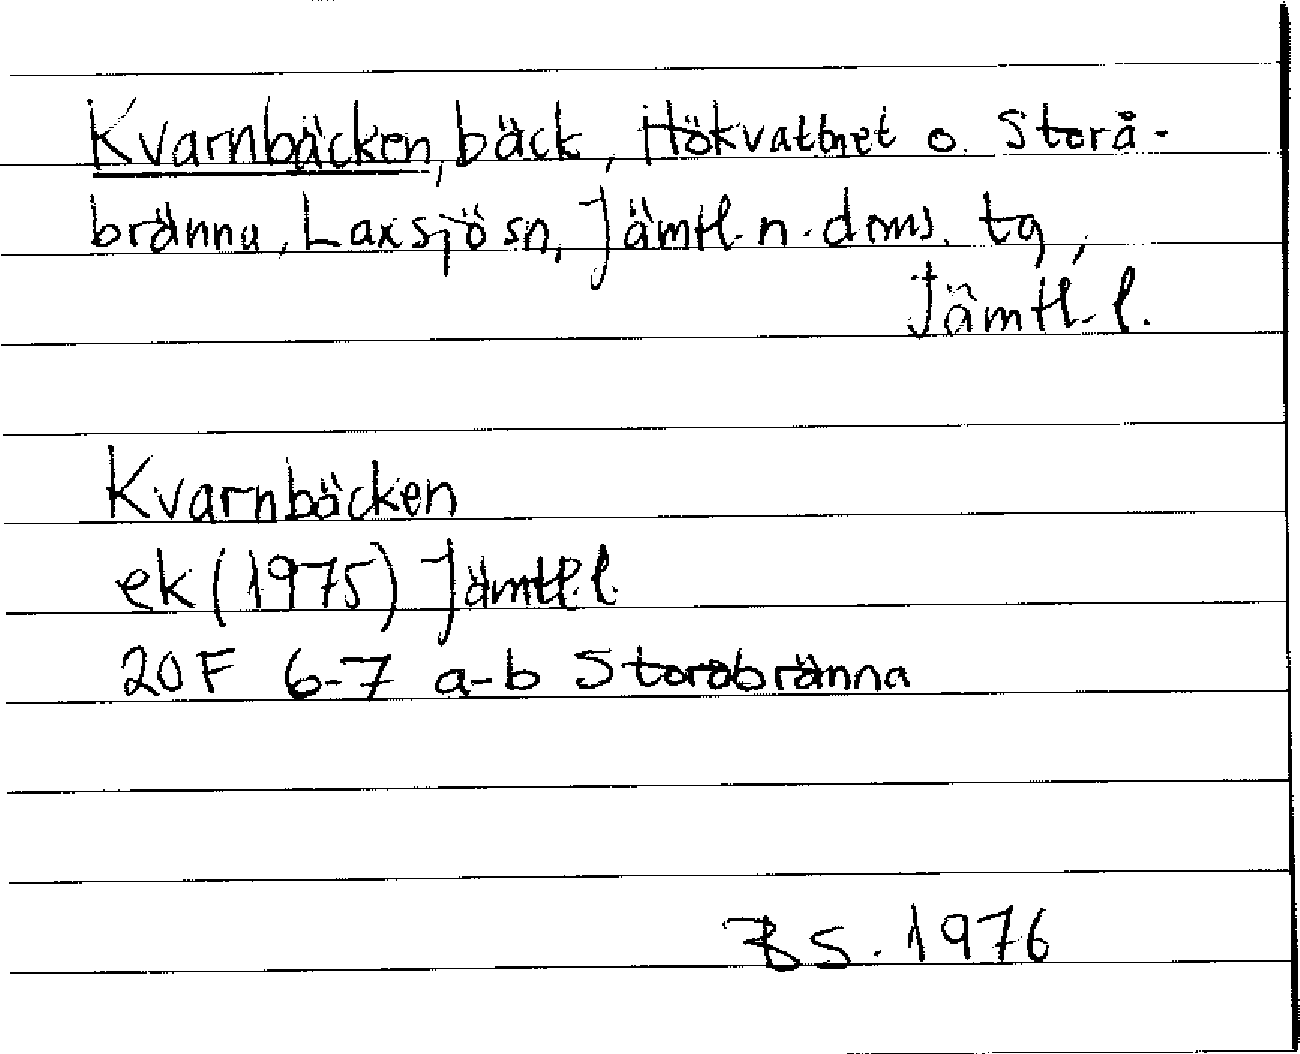 Kvarnbäcken, bäck, Hökvattnet o. Storå-
bränna, Laxsjö sn, Jämtl. n. doms. tg,
Jämtl. l.
Kvarnbäcken
ek (1975) Jämtl. l.
20F 6-7 a-b Storåbränna
BS. 1976